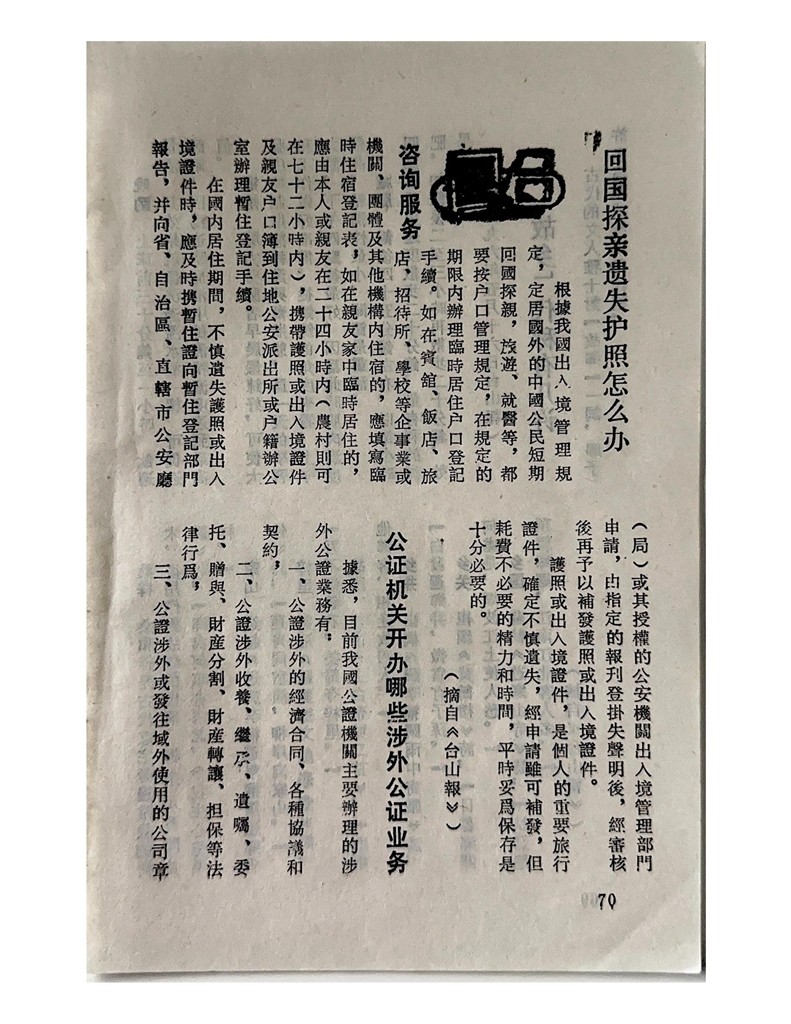 回国探亲遗失护照怎么办
咨询服务
根據我國出入境管理規
定，定居國外的中國公民短期
回國探親，旅遊、就醫等，都
要按户口管理規定，在規定的
期限内辦理臨時居住户口登記
手續。如在賓館、飯店、旅
店、招待所、學校等企事業或
機關、團體及其他機構内住宿的，應填寫臨
時住宿登記表，如在親友家中臨時居住的，
應由本人或親友在二十四小時内（農村則可
在七十二小時内），携帶護照或出入境證件
及親友户口簿到住地公安派出所或户籍辦公
室辦理暫住登記手續。
在國内居住期間，不慎遺失護照或出入
境證件時，應及時携暫住證向暫住登記部門
報告，并向省、自治區、直轄市公安廳
（局）或其授權的公安機關出入境管理部門
申請，由指定的報刊登掛失聲明後，經審核
後再予以補發護照或出入境證件。
護照或出入境證件，是個人的重要旅行
證件，確定不慎遺失，經申請雖可補發，但
耗費不必要的精力和時間，平時妥爲保存是
十分必要的。
（摘自《台山報》）
公证机关开办哪些涉外公证业务
據悉，目前我國公證機關主要辦理的涉
外公證業務有：
一、公證涉外的經濟合同、各種協議和
契約，
二、公證涉外收養、繼承、遺囑、委
托、贈與、財産分割、財産轉讓、担保等法
律行爲，
三、公證涉外或發往域外使用的公司章
70